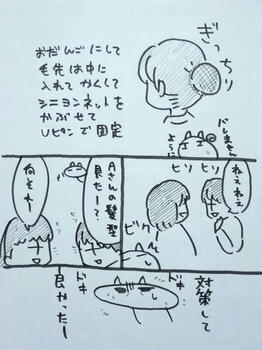 ぎっちり
おだんごにして
毛先は中に
入れてかくして
シニヨンネットを
かぶせて
Uピンで固定
バレません
ように
ねぇねぇ
ヒソ
ヒソ
Aさんの髪型
見たー?
ビクッ
何それー
ヒソ
ヒソ
対策して
良かったー
ドキ
ドキ